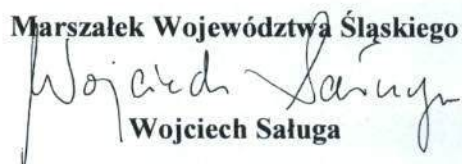 Marszałek Województwa Śląskiego
Wojciech Saługa
Wojciech Saługa